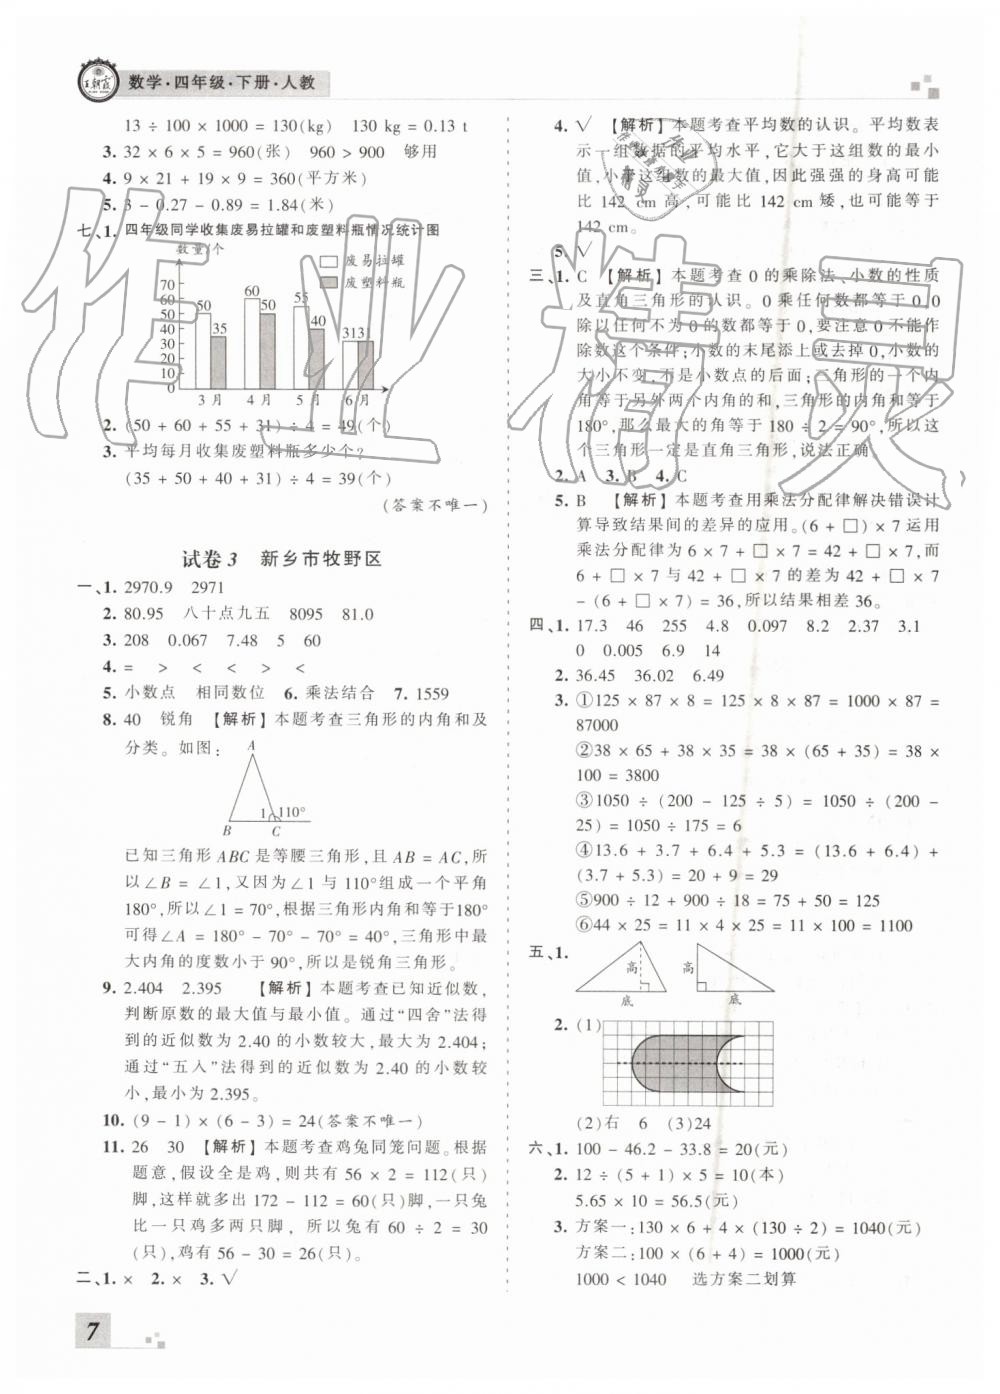 王朝霞
数学·四年级·下册·人教
13 ÷ 100 × 1000 = 130(kg) 130 kg = 0.13 t
3. 32 × 6 × 5 = 960(张) 960 > 900 够用
4. 9 × 21 + 19 × 9 = 360(平方米)
5. 3 - 0.27 - 0.89 = 1.84(米)
七、1. 四年级同学收集废易拉罐和废塑料瓶情况统计图
数量/个
废易拉罐
废塑料瓶
70
60
50
40
30
20
10
0
50 35 60 50 55 40 31 31
3月 4月 5月 6月
2. (50 + 60 + 55 + 31) ÷ 4 = 49(个)
3. 平均每月收集废塑料瓶多少个?
(35 + 50 + 40 + 31) ÷ 4 = 39(个)
(答案不唯一)
试卷3 新乡市牧野区
一、1. 2970.9 2971
2. 80.95 八十点九五 8095 81.0
3. 208 0.067 7.48 5 60
4. = > < < < >
5. 小数点 相同数位 6. 乘法结合 7. 1559
8. 40 锐角 【解析】本题考查三角形的内角和及
分类。如图:
A
1 110°
B C
已知三角形ABC是等腰三角形,且AB = AC,所
以∠B = ∠1,又因为∠1与110°组成一个平角
180°,所以∠1 = 70°,根据三角形内角和等于180°
可得∠A = 180° - 70° - 70° = 40°,三角形中最
大内角的度数小于90°,所以是锐角三角形。
9. 2.404 2.395 【解析】本题考查已知近似数,
判断原数的最大值与最小值。通过“四舍”法得
到的近似数为2.40的小数较大,最大为2.404;
通过“五入”法得到的近似数为2.40的小数较
小,最小为2.395。
10. (9 - 1) × (6 - 3) = 24(答案不唯一)
11. 26 30 【解析】本题考查鸡兔同笼问题。根据
题意,假设全是鸡,则共有56 × 2 = 112(只)
脚,这样就多出172 - 112 = 60(只)脚,一只兔
比一只鸡多两只脚,所以兔有60 ÷ 2 = 30
(只),鸡有56 - 30 = 26(只)。
二、1. × 2. × 3. √
7
4. √ 【解析】本题考查平均数的认识。平均数表
示一组数据的平均水平,它大于这组数的最小
值,小于这组数的最大值,因此强强的身高可能
比142 cm高,可能比142 cm矮,也可能等于
142 cm。
5. √
三、1. C 【解析】本题考查0的乘除法、小数的性质
及直角三角形的认识。0乘任何数都等于0,0
除以任何不为0的数都等于0,要注意0不能作
除数这个条件;小数的末尾添上或去掉0,小数的
大小不变,不是小数点的后面;三角形的一个内
角等于另外两个内角的和,三角形的内角和等于
180°,那么最大的角等于180 ÷ 2 = 90°,所以这
个三角形一定是直角三角形,说法正确。
2. A 3. B 4. C
5. B 【解析】本题考查用乘法分配律解决错误计
算导致结果间的差异的应用。(6 + □) × 7运用
乘法分配律为6 × 7 + □ × 7 = 42 + □ × 7,而
6 + □ × 7与42 + □ × 7的差为42 + □ × 7
- (6 + □ × 7) = 36,所以结果相差36。
四、1. 17.3 46 255 4.8 0.097 8.2 2.37 3.1
0 0.005 6.9 14
2. 36.45 36.02 6.49
3. ①125 × 87 × 8 = 125 × 8 × 87 = 1000 × 87 =
87000
②38 × 65 + 38 × 35 = 38 × (65 + 35) = 38 ×
100 = 3800
③1050 ÷ (200 - 125 ÷ 5) = 1050 ÷ (200 -
25) = 1050 ÷ 175 = 6
④13.6 + 3.7 + 6.4 + 5.3 = (13.6 + 6.4) +
(3.7 + 5.3) = 20 + 9 = 29
⑤900 ÷ 12 + 900 ÷ 18 = 75 + 50 = 125
⑥44 × 25 = 11 × 4 × 25 = 11 × 100 = 1100
五、1.
高 底 高 底
2. (1)
(2)右 6 (3)24
六、1. 100 - 46.2 - 33.8 = 20(元)
2. 12 ÷ (5 + 1) × 5 = 10(本)
5.65 × 10 = 56.5(元)
3. 方案一:130 × 6 + 4 × (130 ÷ 2) = 1040(元)
方案二:100 × (6 + 4) = 1000(元)
1000 < 1040 选方案二划算
作业精灵